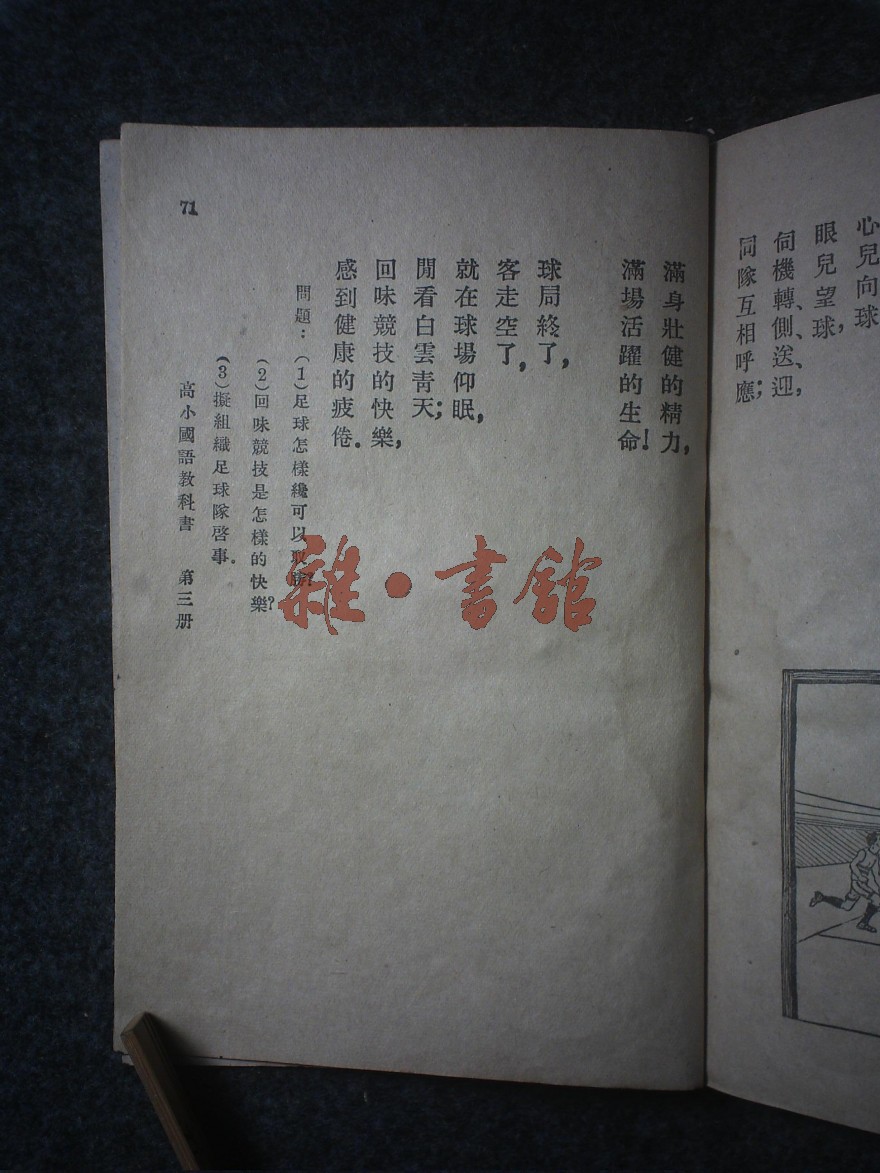 心兒向球
眼兒望球，
伺機轉、側、送、迎，
同隊互相呼應；
滿身壯健的精力，
滿場活躍的生命！
球局終了，
客走空了，
就在球場仰眠，
閒看白雲青天；
回味競技的快樂，
感到健康的疲倦。
問題：（1）足球怎樣纔可以取勝？
（2）回味競技是怎樣的快樂？
（3）擬組織足球隊啓事。
高小國語教科書 第三册
71
雜·書館